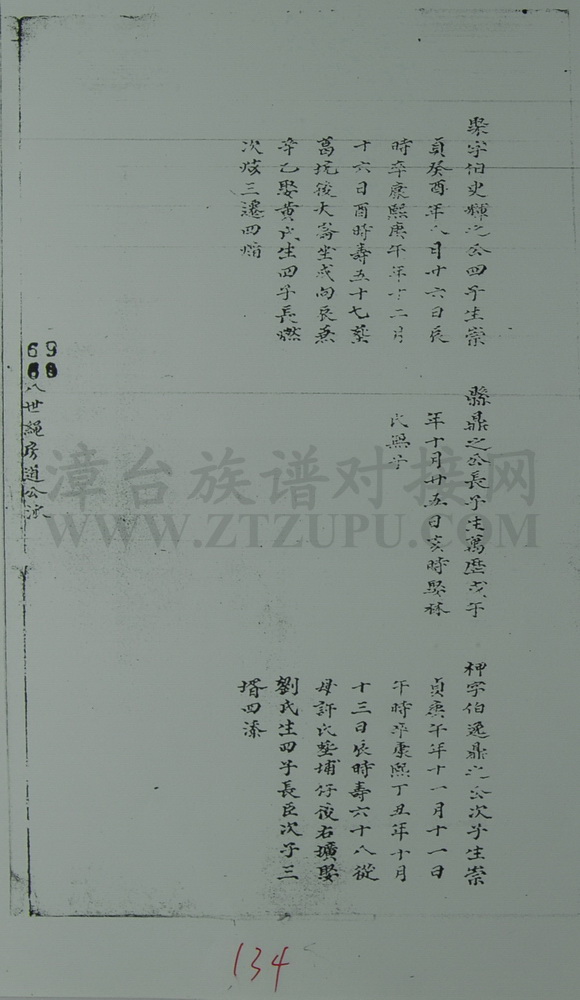 字伯史輝之公四子生崇
貞癸酉年八月廿六日辰
時卒康熙庚午年十二月
十六日酉時壽五十七葬
葛坑後大崙坐戌向辰兼
辛乙娶黃氏生四子長
次 三遷四
鼎之公長子生萬歷戊午
年十月廿五日亥時娶林
氏無子
柙字伯逸鼎之公次子生崇
貞庚午年十一月十一日
午時卒康熙丁丑年十月
十三日辰時壽六十八從
母許氏墓埔仔後右壙娶
劉氏生四子長臣次子三
壻四溱
69
八世繩房道公派
漳台族谱对接网
WWW.ZTZUPU.COM
134